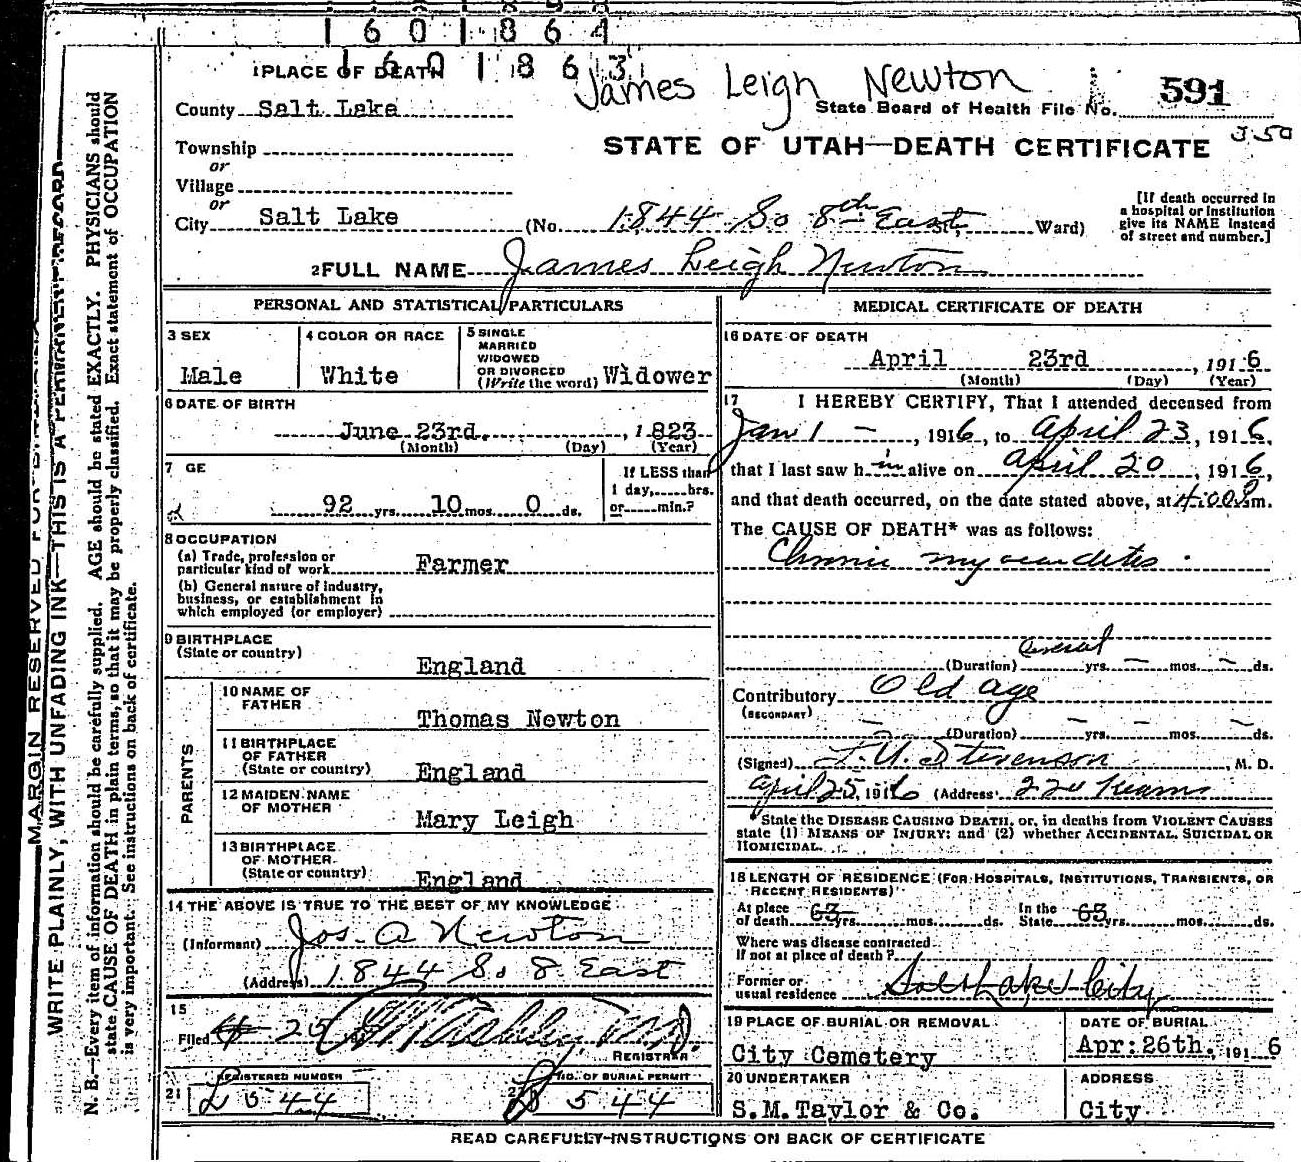 1601864
1601863
James Leigh Newton
1 PLACE OF DEATH
County Salt Lake
State Board of Health File No. 591
Township
or
Village
or
City Salt Lake
STATE OF UTAH—DEATH CERTIFICATE
J50
(No. 1844 So 8th East, Ward)
[If death occurred in
a hospital or institution
give its NAME instead
of street and number.]
2 FULL NAME James Leigh Newton
PERSONAL AND STATISTICAL PARTICULARS
3 SEX
Male
4 COLOR OR RACE
White
5 SINGLE
MARRIED
WIDOWED
OR DIVORCED
(Write the word) Widower
6 DATE OF BIRTH
June 23rd, 1823
(Month) (Day) (Year)
7 GE
92 yrs. 10 mos. 0 ds.
If LESS than
1 day,.....hrs.
or.....min.?
8 OCCUPATION
(a) Trade, profession or
particular kind of work Farmer
(b) General nature of industry,
business, or establishment in
which employed (or employer)
9 BIRTHPLACE
(State or country)
England
PARENTS
10 NAME OF
FATHER
Thomas Newton
11 BIRTHPLACE
OF FATHER
(State or country) England
12 MAIDEN NAME
OF MOTHER
Mary Leigh
13 BIRTHPLACE
OF MOTHER
(State or country) England
14 THE ABOVE IS TRUE TO THE BEST OF MY KNOWLEDGE
(Informant) Jos. A Newton
(Address) 1844 So 8 East
15
Filed 4-25
REGISTRAR
21 REGISTERED NUMBER
544
22 NO. OF BURIAL PERMIT
544
MEDICAL CERTIFICATE OF DEATH
16 DATE OF DEATH
April 23rd, 1916
(Month) (Day) (Year)
17 I HEREBY CERTIFY, That I attended deceased from
Jan 1 —, 1916, to April 23, 1916,
that I last saw him alive on April 20, 1916,
and that death occurred, on the date stated above, at 4:00 m.
The CAUSE OF DEATH* was as follows:
Chronic myocarditis.
several
(Duration) yrs. — mos. — ds.
Contributory Old age
(SECONDARY)
(Duration) yrs. mos. ds.
(Signed) Stevenson, M. D.
April 25, 1916 (Address) 220 Kearns
*State the DISEASE CAUSING DEATH, or, in deaths from VIOLENT CAUSES
state (1) MEANS OF INJURY; and (2) whether ACCIDENTAL, SUICIDAL OR
HOMICIDAL.
18 LENGTH OF RESIDENCE (FOR HOSPITALS, INSTITUTIONS, TRANSIENTS, OR
RECENT RESIDENTS)
At place
of death 63 yrs. mos. ds.
In the
State 63 yrs. mos. ds.
Where was disease contracted
If not at place of death?
Former or
usual residence Salt Lake City
19 PLACE OF BURIAL OR REMOVAL
City Cemetery
DATE OF BURIAL
Apr: 26th, 1916
20 UNDERTAKER
S.M. Taylor & Co.
ADDRESS
City
READ CAREFULLY INSTRUCTIONS ON BACK OF CERTIFICATE
MARGIN RESERVED FOR BINDING
WRITE PLAINLY, WITH UNFADING INK—THIS IS A PERMANENT RECORD
N. B.—Every item of information should be carefully supplied. AGE should be stated EXACTLY. PHYSICIANS should
state CAUSE OF DEATH in plain terms, so that it may be properly classified. Exact statement of OCCUPATION
is very important. See instructions on back of certificate.